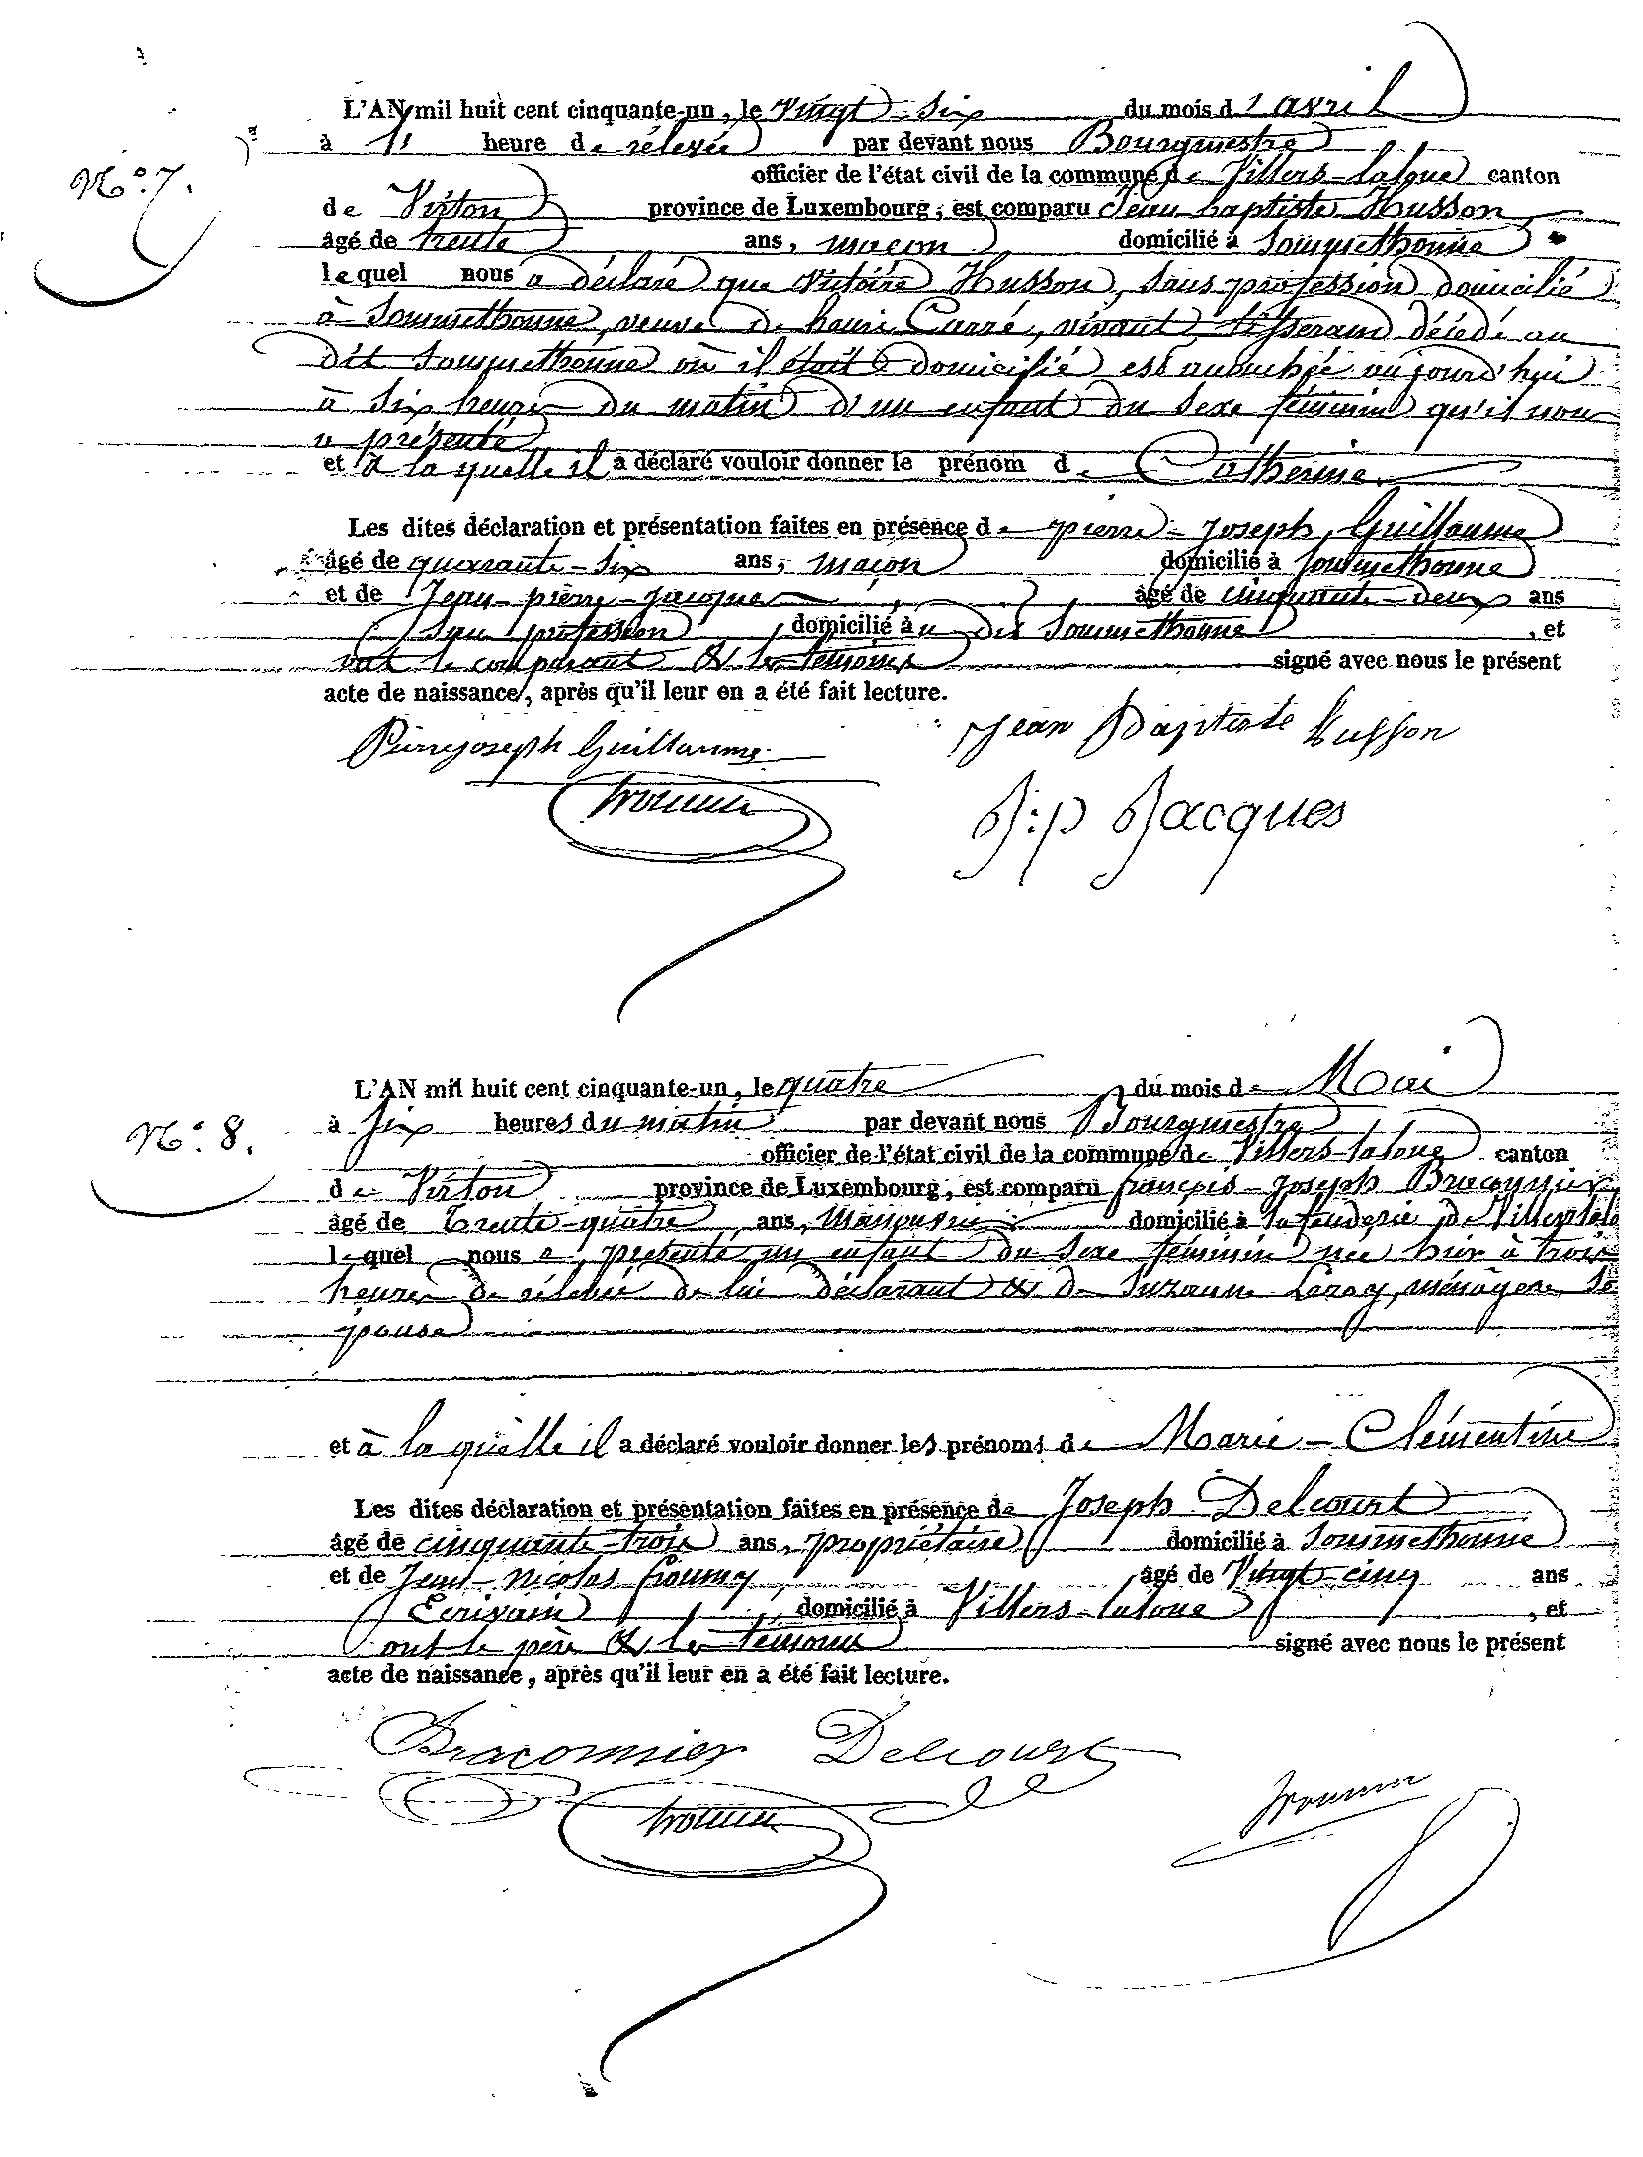 L'AN mil huit cent cinquante-un, le vingt-six du mois d'avril
N°. 7.
à heure de rélevée par devant nous Bourgmestre
officier de l'état civil de la commune de Villers-laloue canton
de Virton province de Luxembourg, est comparu Jean baptiste Husson
âgé de trente ans, maçon domicilié à Sommethonne
lequel nous a déclaré que Victoire Husson, sans profession domicilié
à Sommethonne, veuve de henri Carré, vivant tisserand décédé au
dit Sommethonne où il étoit domicilié est accouchée aujourd'hui
à six heures du matin d'un enfant du sexe féminin qu'il nous
a présenté
et à la quelle il a déclaré vouloir donner le prénom de Catherine.
Les dites déclaration et présentation faites en présence de pierre-Joseph Guillaume
âgé de quarante-six ans, maçon domicilié à Sommethonne
et de Jean-pierre-Jacques âgé de cinquante-deux ans
sans profession domicilié au dit Sommethonne, et
ont le comparant & les témoins signé avec nous le présent
acte de naissance, après qu'il leur en a été fait lecture.
Pierrejoseph Guillaume Jean Baptiste Husson
J:p Jacques
L'AN mil huit cent cinquante-un, le quatre du mois de Mai
N°. 8.
à six heures du matin par devant nous Bourgmestre
officier de l'état civil de la commune de Villers-laloue canton
de Virton province de Luxembourg, est comparu françois-Joseph Braconnier
âgé de trente-quatre ans, Manouvrier domicilié à la fenderie de Villerslalo
lequel nous a présenté un enfant du sexe féminin née hier à trois
heures de rélevée de lui déclarant & de Suzanne Leroy, ménagère so
épouse
et à la quelle il a déclaré vouloir donner les prénoms de Marie-Clémentine
Les dites déclaration et présentation faites en présence de Joseph Delcourt
âgé de cinquante-trois ans, propriétaire domicilié à Sommethonne
et de Jean-Nicolas âgé de Vingt-cinq ans
Ecrivain domicilié à Villers-laloue, et
ont le père & les témoins signé avec nous le présent
acte de naissance, après qu'il leur en a été fait lecture.
Braconnier Delcourt